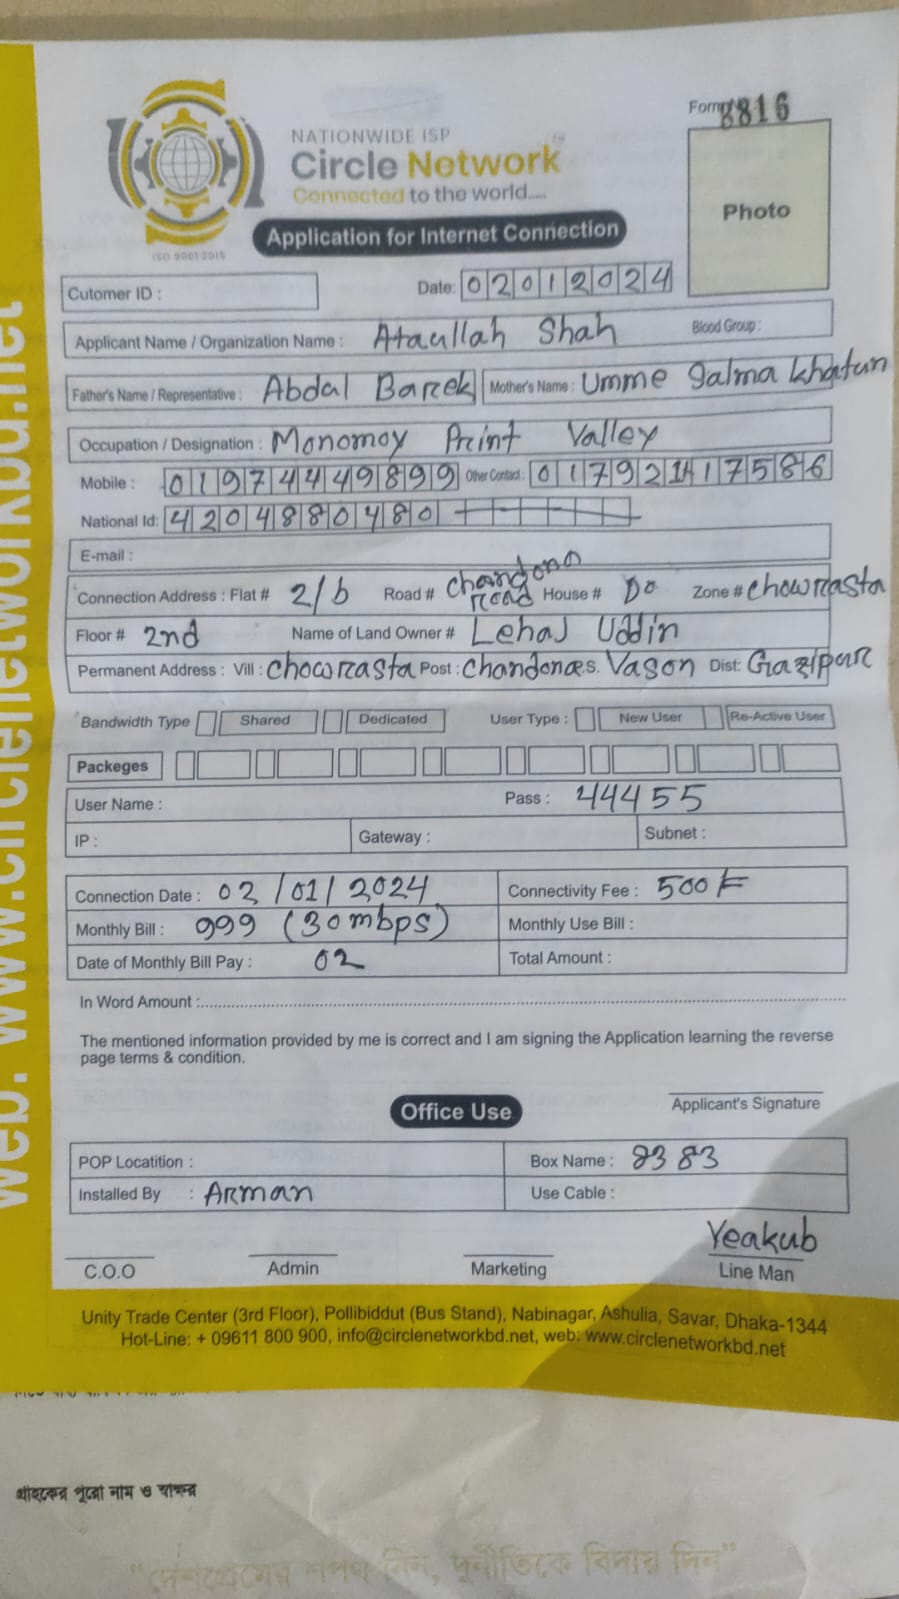 Form 8816
NATIONWIDE ISP
Circle Network
Connected to the world.....
ISO 9001:2015
Photo
Application for Internet Connection
Cutomer ID : Date: 02012024
Applicant Name / Organization Name : Ataullah Shah Blood Group :
Father's Name / Representative : Abdal Barek Mother's Name : Umme Salma Khatun
Occupation / Designation : Monomoy Print Valley
Mobile : 01974449899 Other Contact : 0179217586
National Id: 4204880480
E-mail :
Connection Address : Flat # 2/b Road # Chandona Road House # Do Zone # Chowrasta
Floor # 2nd Name of Land Owner # Lehaj Uddin
Permanent Address : Vill : Chowrasta Post : Chandona P.S. Vason Dist: Gazipur
Bandwidth Type Shared Dedicated User Type : New User Re-Active User
Packeges
User Name : Pass : 44455
IP : Gateway : Subnet :
Connection Date : 02/01/2024 Connectivity Fee : 500
Monthly Bill : 999 (30mbps) Monthly Use Bill :
Date of Monthly Bill Pay : 02 Total Amount :
In Word Amount :
The mentioned information provided by me is correct and I am signing the Application learning the reverse
page terms & condition.
Applicant's Signature
Office Use
POP Locatition : Box Name : 8383
Installed By : Arman Use Cable :
Yeakub
C.O.O Admin Marketing Line Man
Unity Trade Center (3rd Floor), Pollibiddut (Bus Stand), Nabinagar, Ashulia, Savar, Dhaka-1344
Hot-Line: + 09611 800 900, info@circlenetworkbd.net, web: www.circlenetworkbd.net
web: www.circlenetworkbd.net
গ্রাহকের পুরো নাম ও স্বাক্ষর
"দেশপ্রেমের শপথ নিন, দুর্নীতিকে বিদায় দিন"